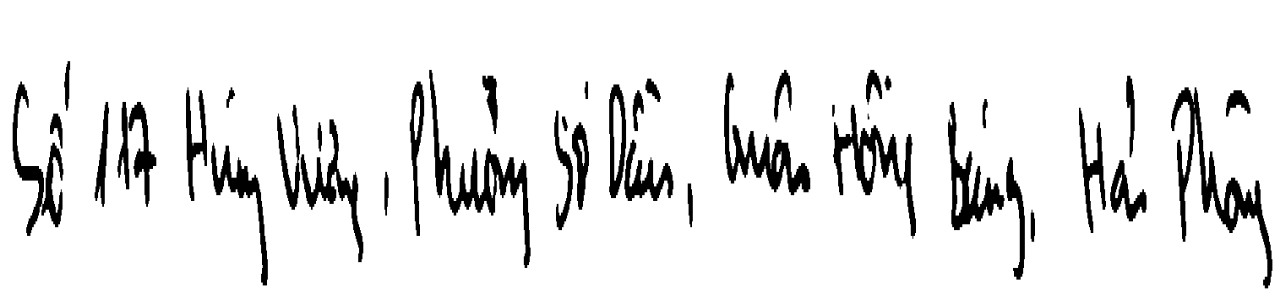 Số 117 Hùng Vương, Phường Sở Dầu, Quận Hồng Bàng, Hải Phòng